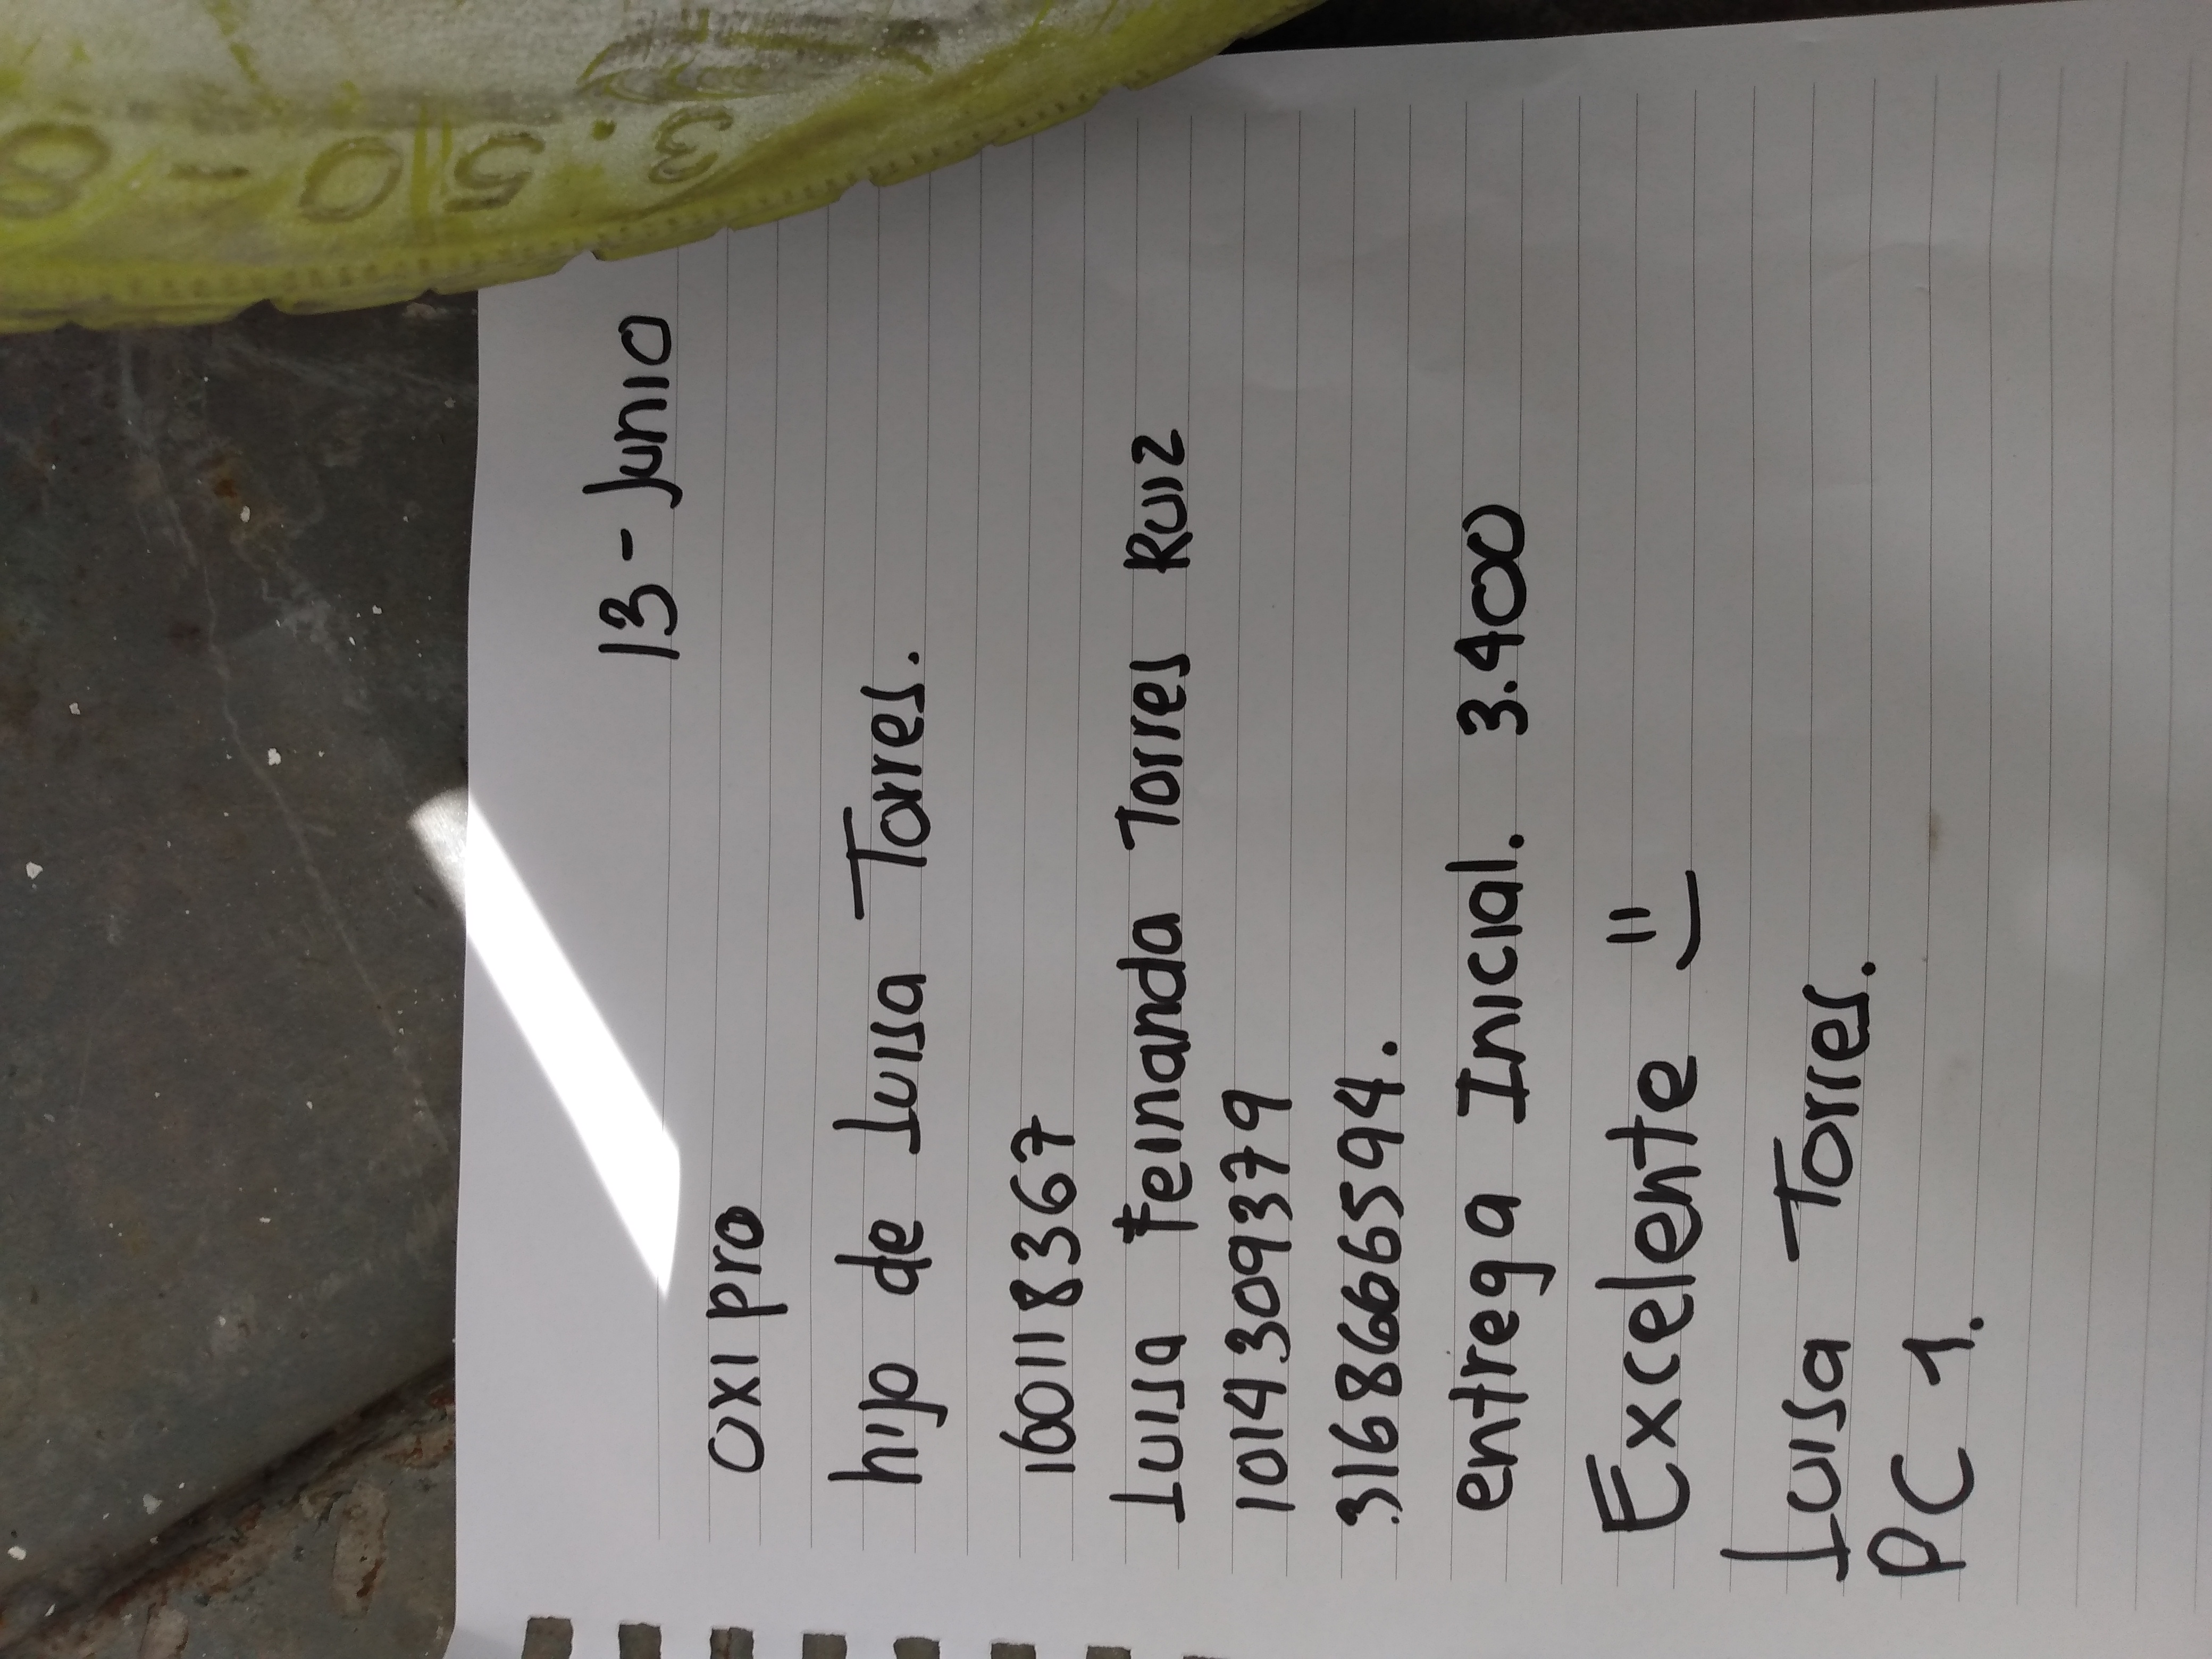 3.50-8
13-Junio
oxi pro
hijo de Luisa Torres.
1601118367
Luisa Fernanda Torres Ruiz
1014309379
3168666594.
entrega Inicial. 3.400
Excelente
Luisa Torres.
PC 1.